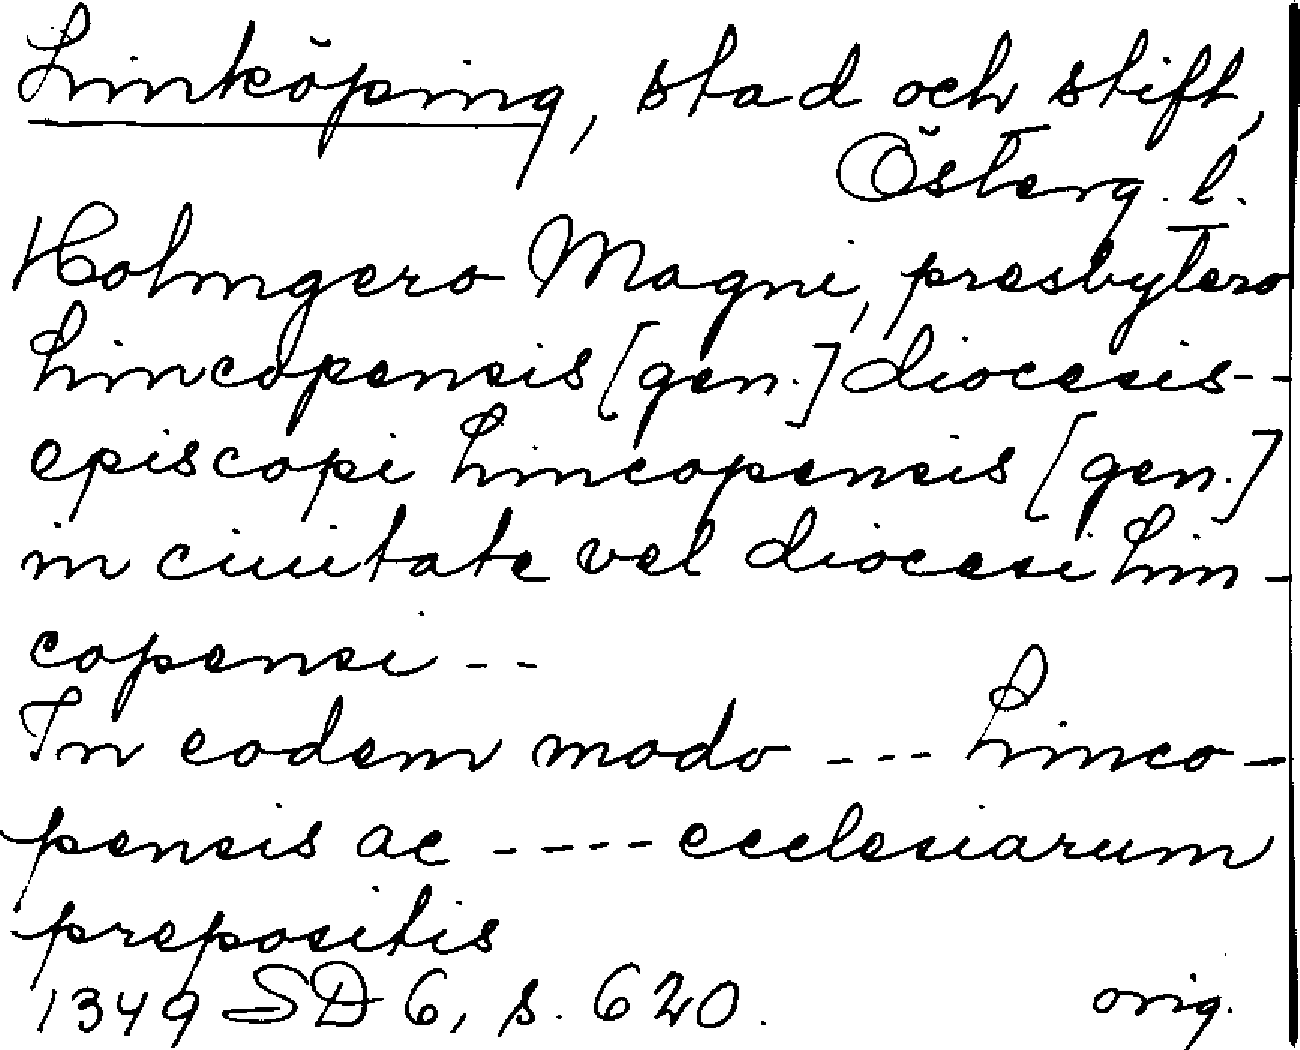 Linköping, stad och stift,
Österg. l.
Holmgero Magni, presbytero
Lincopensis [gen.] diocesis --
episcopi Lincopensis [gen.]
in ciuitate vel diocesi Lin-
copensi --
In eodem modo --- Linco-
pensis ac ---- ecclesiarum
prepositis
1349 SD 6, s. 620. orig.